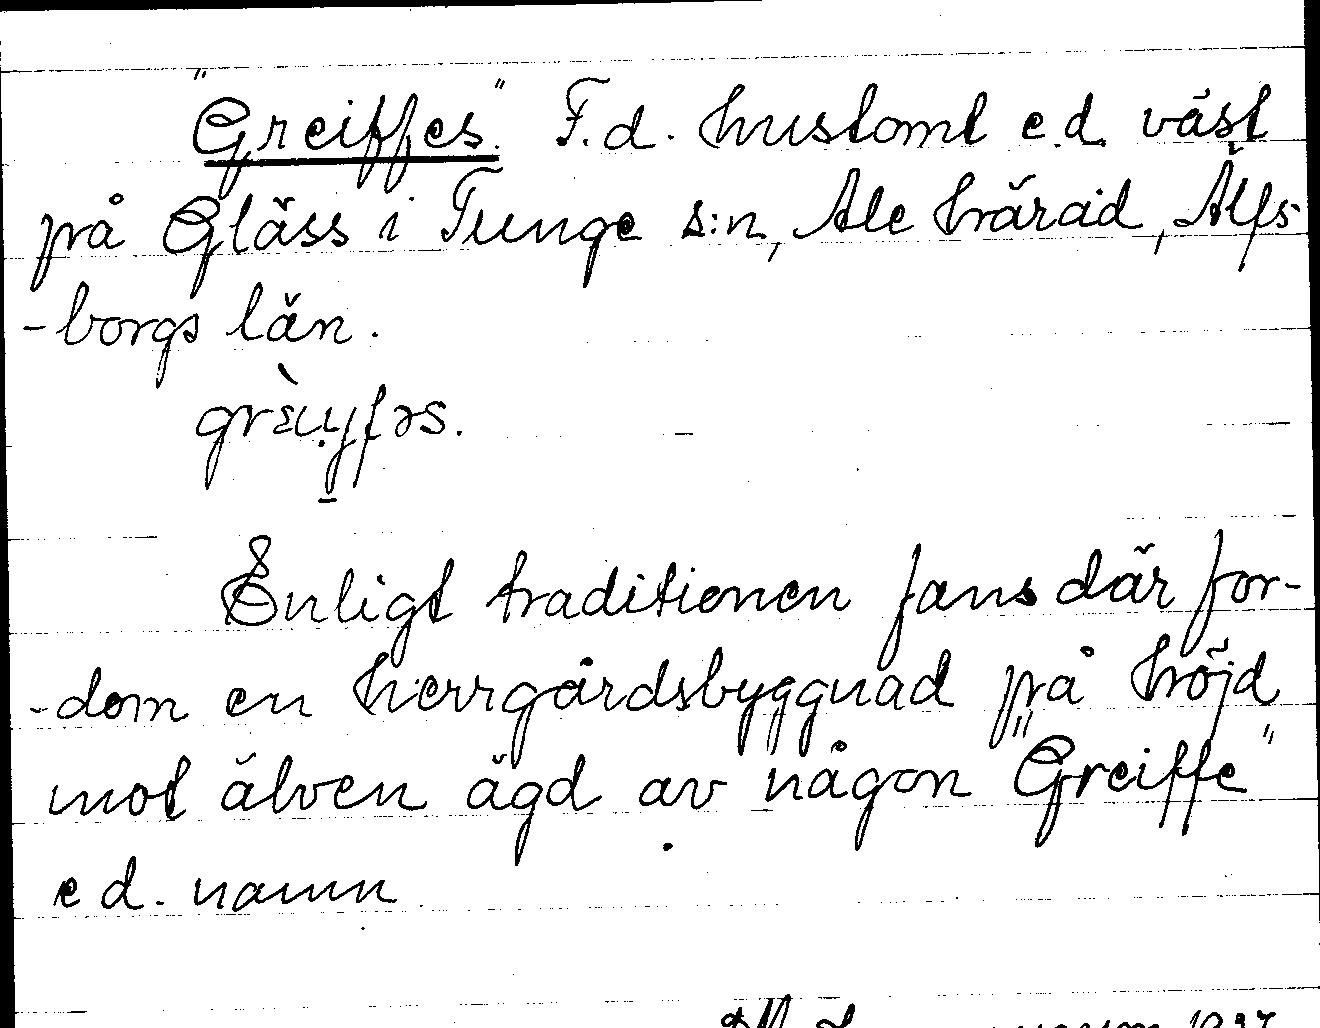 "Greiffes" F.d. hustomt e.d. väst
på Gläss i Tunge s:n, Ale härad, Älfs-
-borgs län.

Enligt traditionen fans där for-
-dom en herrgårdsbyggnad på höjd
mot älven ägd av någon "Greiffe"
e d. namn